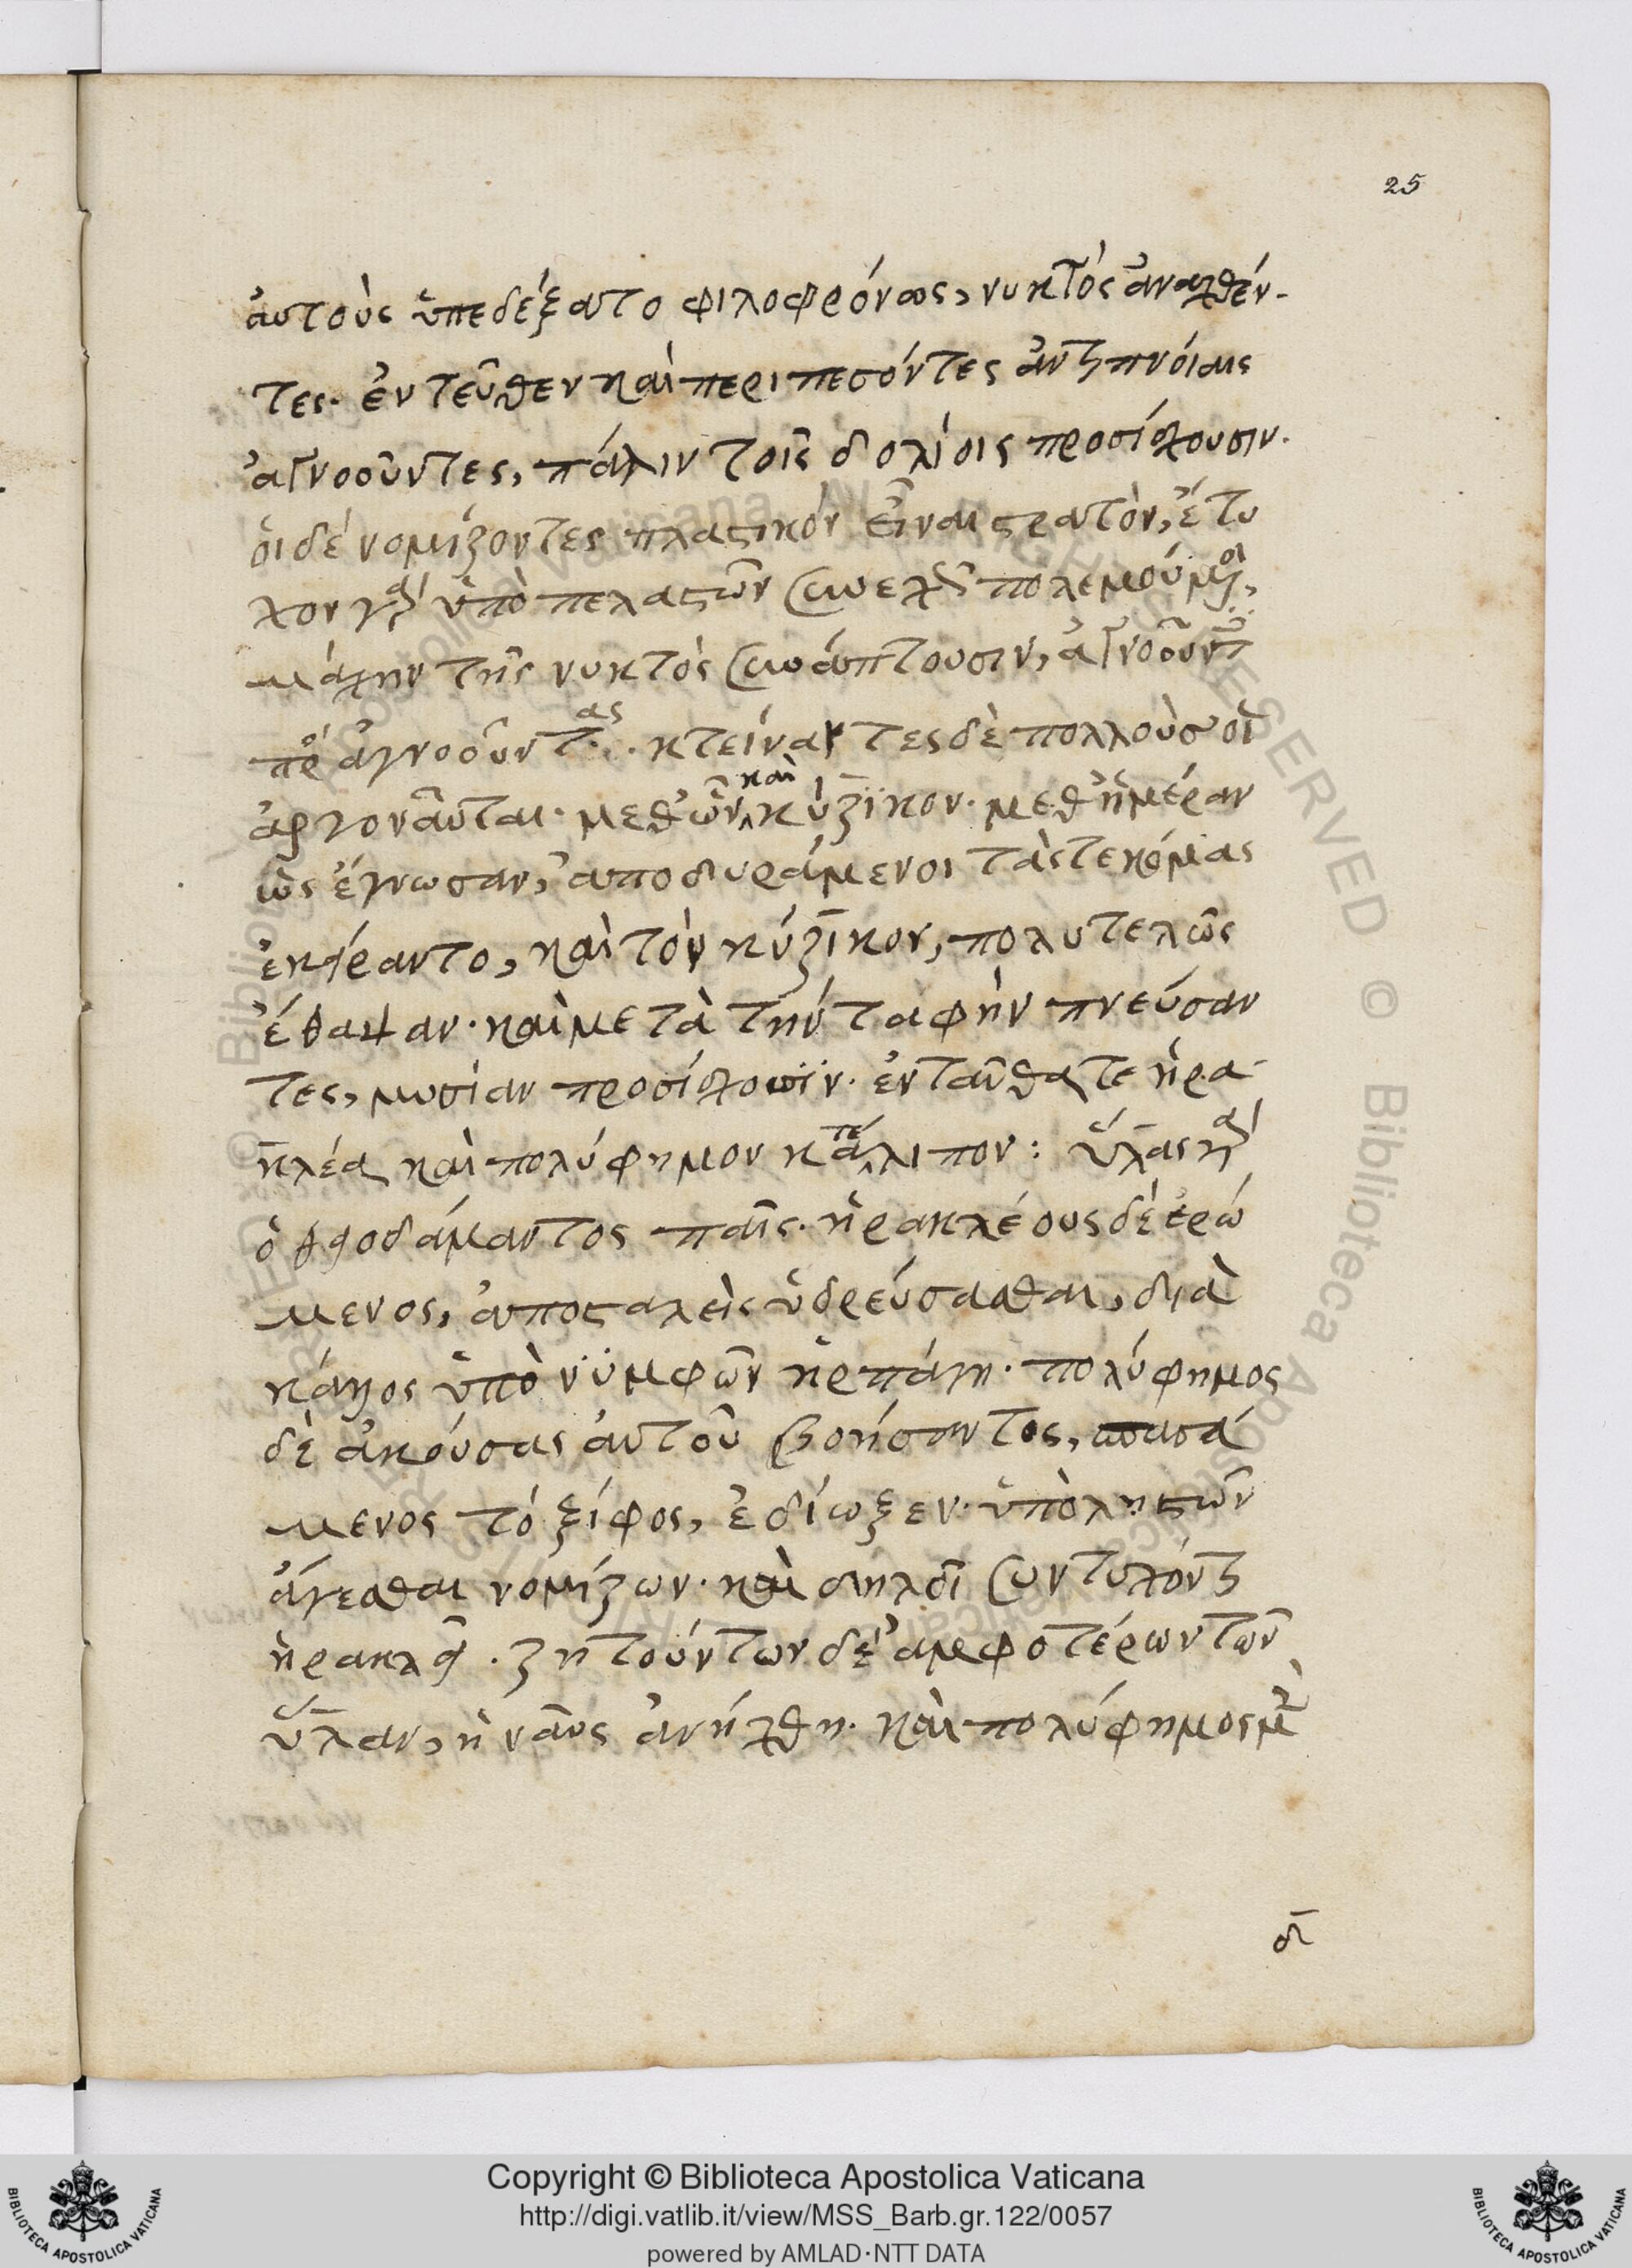 25
ἀυτοὺς ὑπεδέξατο φιλοφρόνως, νυκτὸς ἀναχθέν-
τες. ἐντεῦθεν καὶ περιπεσόντες ἀντιπνόιαις
ἀγνοοῦντες, πάλιν τοῖς δολίοις προσίσχουσιν.
ὁι δὲ νομίζοντες πλαστικὸν εἶναι στρατὸν, ἔτυ
χον γὰρ ὑπὸ πελαστῶν συνεχῶς πολεμούμενοι,
μάχην τῆς νυκτὸς συνάπτουσιν, ἀγνοοῦντες
πρὸς ἀγνοοῦντας. κτείναντες δὲ πολλοὺς οἱ
ἀργοναῦται. μεθ' ὧν καὶ κύζικον. μεθ' ἡμέραν
ὡς ἔγνωσαν, ἀποδυράμενοι τάς τε κόμας
ἐκείραντο, καὶ τὸν κύζικον, πολυτελῶς
ἔθαψαν. καὶ μετὰ τὴν ταφὴν πνεύσαν
τες, μυσίαν προσίσχουσϊν. ἐνταῦθα τε ἡρα
κλέα καὶ πολύφημον κατέλιπον: ὕλας γὰρ
ὁ θειοδάμαντος παῖς. ἡρακλέους δὲ ἐρώ
μενος, ἀποσταλεὶς ὑδρεύσασθαι, διὰ
κάλλος ὑπὸ νυμφῶν ἡρπάγη. πολύφημος
δὲ ἀκούσας ἀυτοῦ βοήσαντος, σπασά
μενος τὸ ξίφος, ἐδίωξεν. ὑπὸ ληστῶν
ἄγεσθαι νομίζων. καὶ δηλοῖ συντυχόντι
ἡρακλεῖ. ζητούντων δὲ ἀμφοτέρων τὸν
ὕλαν, ἡ ναῦς ἀνήχθη. καὶ πολύφημος μὲν
Copyright © Biblioteca Apostolica Vaticana
http://digi.vatlib.it/view/MSS_Barb.gr.122/0057
powered by AMLAD·NTT DATA